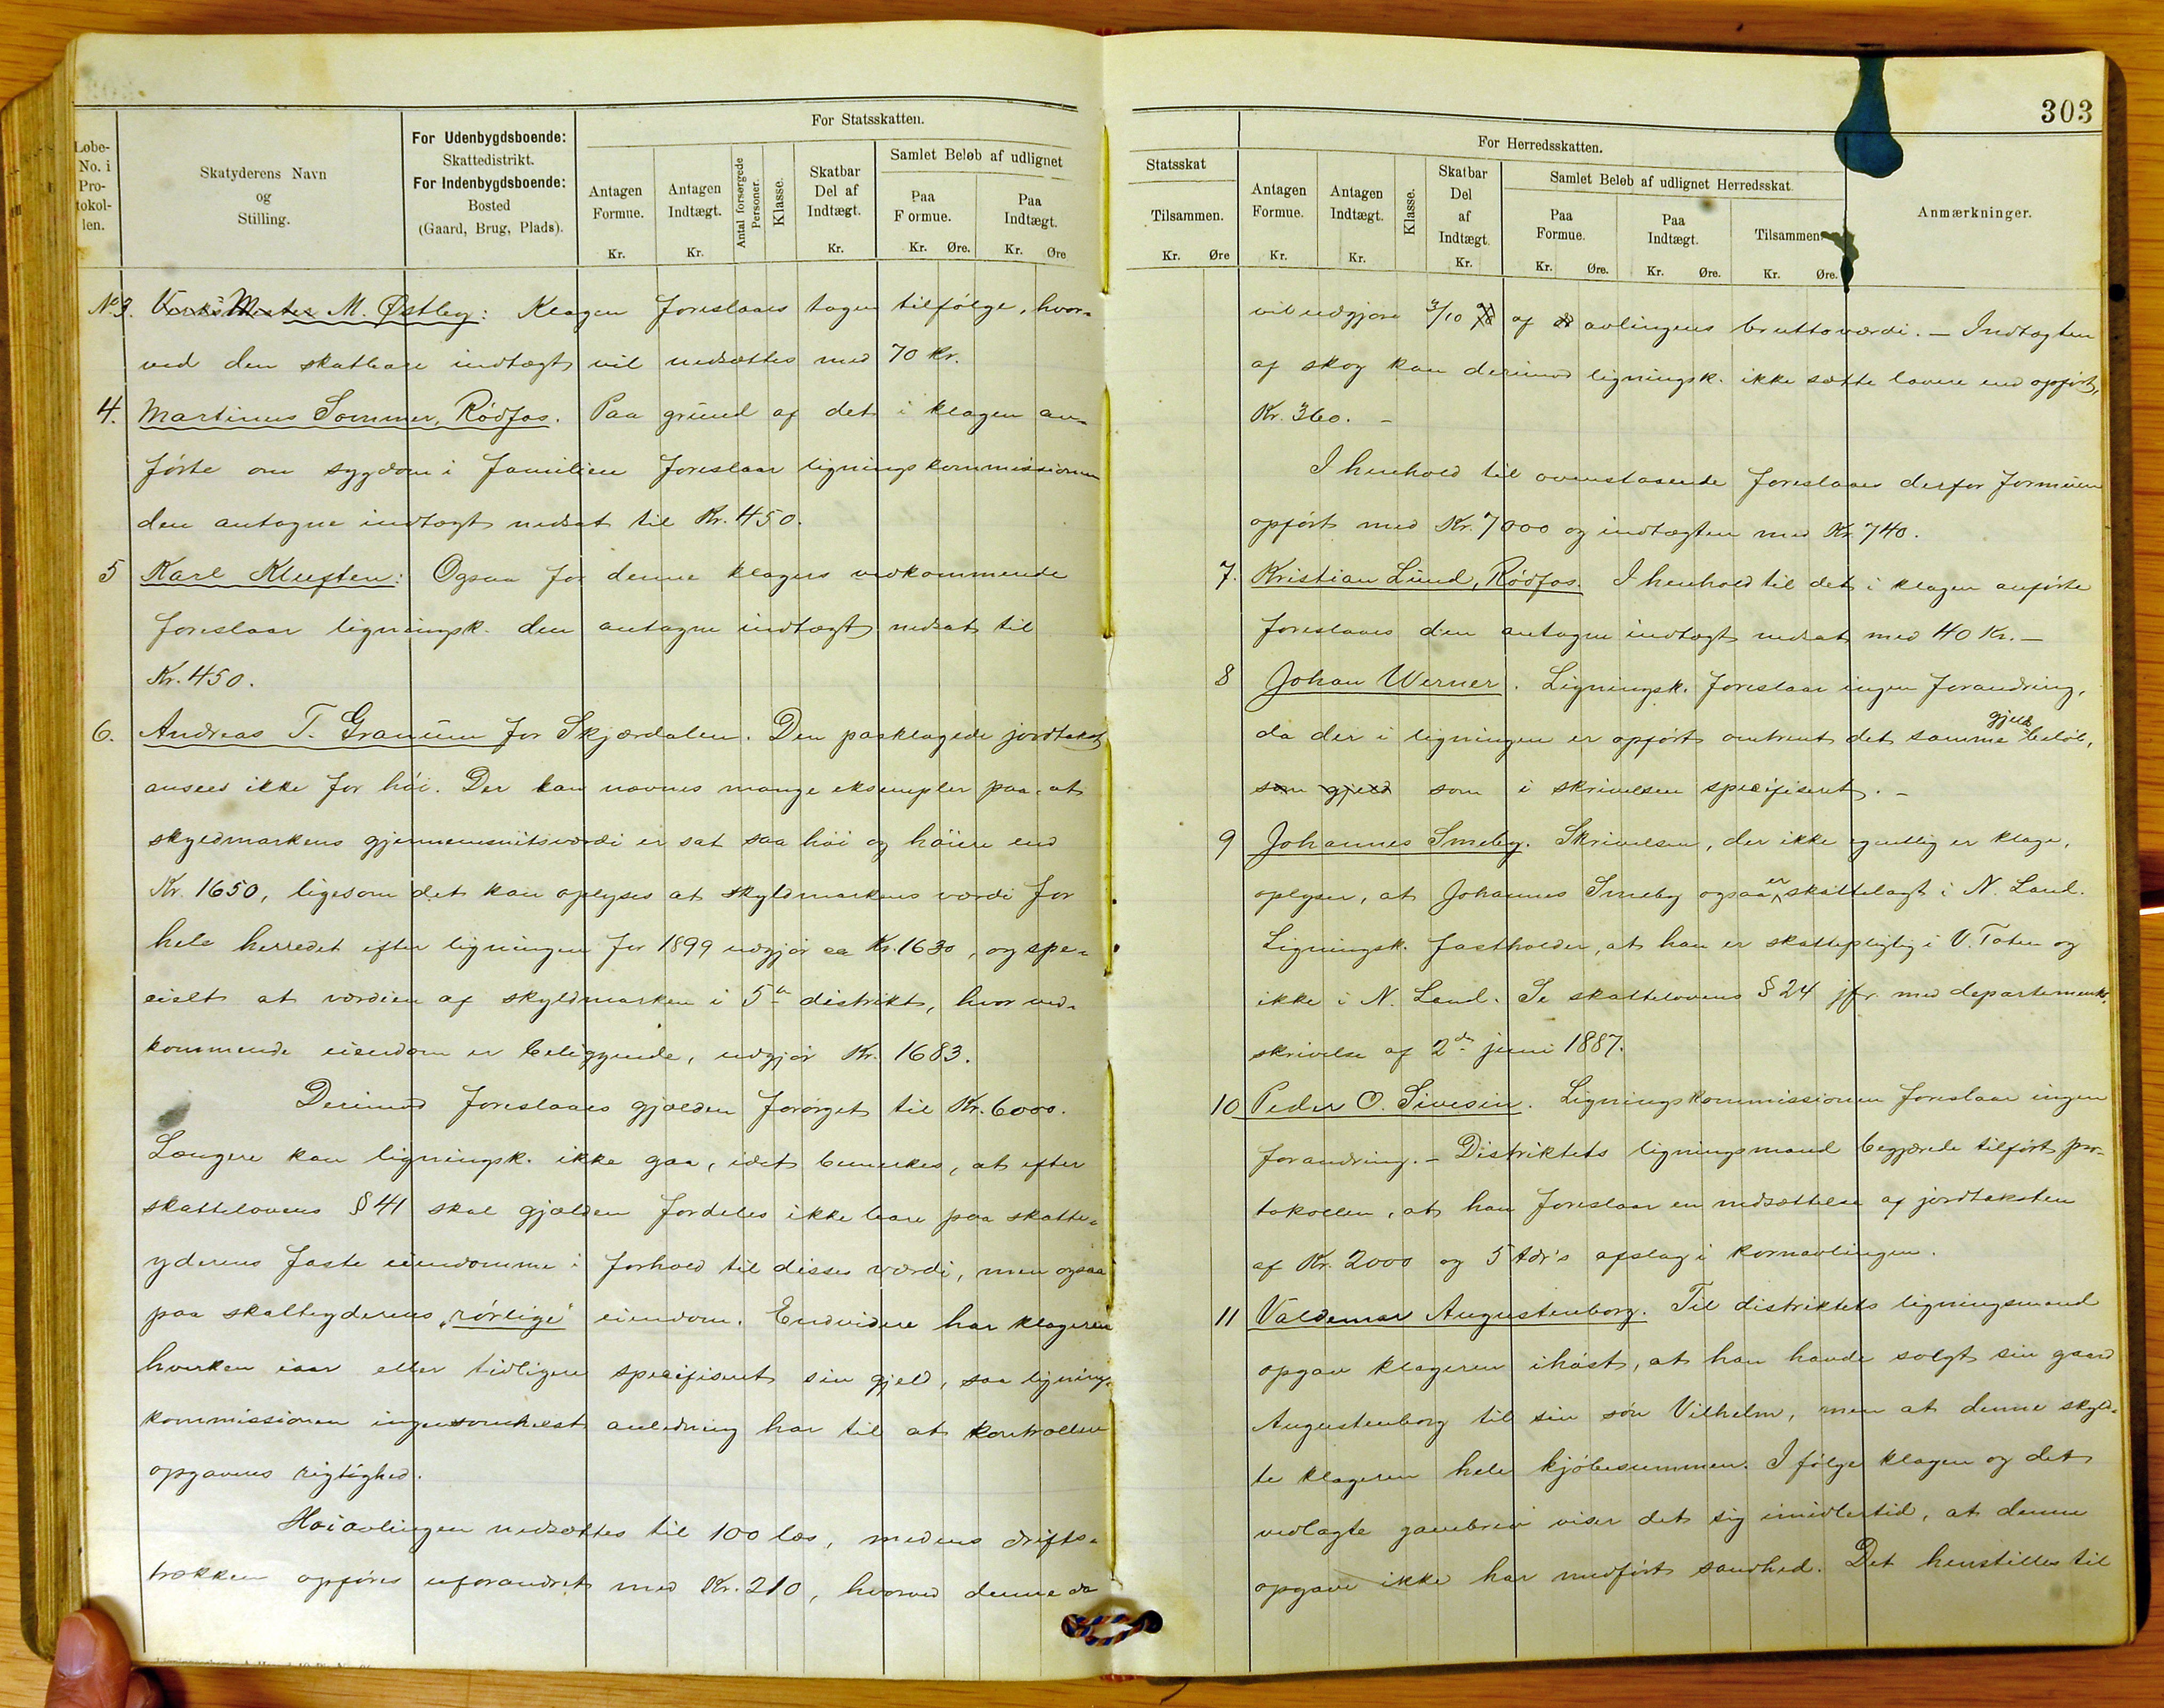 303
Løbe-No. i Pro-tokol-len.
Skatyderens Navn og Stilling.
For Udenbygdsboende: Skattedistrikt. For Indenbygdsboende: Bosted (Gaard, Brug, Plads).
For Statsskatten.
Antagen Formue. Kr.
Antagen Indtægt. Kr.
Antal forsørgede Personer.
Klasse.
Skatbar Del af Indtægt. Kr.
Samlet Beløb af udlignet
Paa Formue. Kr. Øre.
Paa Indtægt. Kr. Øre
No 3. Verks Mester M. Østby: Klagen foreslaaes tagen tilfølge, hvor-
ved den skatbare indtægt vil nedsættes med 70 kr.
4. Martinus Sommer, Rødfos. Paa grund af det i klagen an-
førte om sygdom i familien foreslaar ligningskommissionen
den antagne indtægt nedsat til Kr. 450.
5 Karl Kluften: Ogsaa for denne klagers vedkommende
foreslaar ligningsk. den antagne indtægt nedsat til
Kr. 450.
6. Andreas T. Granum for Skjærdalen. Den paaklagede jordtakst
ansees ikke for høi. Der kan nævnes mange eksempler paa, at
skyldmarkens gjennemsnitsværdi er sat saa høi og høiere end
Kr. 1650, ligesom det kan oplyses at skyldmarkens værdi for
hele herredet efter ligningen for 1899 udgjør ca Kr. 1630, og spe-
cielt at værdien af skyldmarken i 5te distrikt, hvor ved-
kommende eiendom er beliggende, udgjør Kr. 1683.
Derimod foreslaaes gjælden forøget til Kr. 6000.
Længere kan ligningsk. ikke gaa, idet bemerkes, at efter
skattelovens § 41 skal gjælden fordeles ikke bare paa skatte-
yderens faste eiendomme i forhold til disses værdi, men ogsaa
paa skatteyderens "rørlige" eiendom. Endvidere har klageren
hverken iaar eller tidligere specifiseret sin gjeld, saa lignings-
kommissionen ingensomhelst anledning har til at kontrollere
opgavens rigtighed.
Høiavlingen nedsættes til 100 læs, medens drifts-
trækken opføres uforandret med Kr. 210, hvorved denne da
Statsskat Tilsammen. Kr. Øre
For Herredsskatten.
Antagen Formue. Kr.
Antagen Indtægt. Kr.
Klasse.
Skatbar Del af Indtægt. Kr.
Samlet Beløb af udlignet Herredsskat.
Paa Formue. Kr. Øre.
Paa Indtægt. Kr. Øre.
Tilsammen. Kr. Øre.
Anmærkninger.
vil udgjøre 3/10 af avlingens bruttoværdi. – Indtægten
af skog kan derimod ligningsk. ikke sætte lavere end opført,
Kr. 360. –
I henhold til ovenstaaende foreslaaes derfor formuen
opført med Kr. 7000 og indtægten med Kr. 740.
7. Kristian Lund, Rødfos. I henhold til det i klagen anførte
foreslaaes den antagne indtægt nedsat med 40 Kr. –
8 Johan Werner. Ligningsk. foreslaar ingen forandring,
da der i ligningen er opført omtrent det samme gjelds beløb,
som gjeld som i skrivelsen specifiseret. –
9 Johannes Smeby. Skrivelsen, der ikke egentlig er klage,
oplyser, at Johannes Smeby ogsaa er skattelagt i N. Land.
Ligningsk. fastholder, at han er skattepligtig i V. Toten og
ikke i N. Land. Se skattelovens § 24 jfr. med departements-
skrivelse af 2den juni 1887.
10 Peder O. Sivesin. Ligningskommissionen foreslaar ingen
forandring. – Distriktets ligningsmand begjærede tilført pro-
tokollen, at han foreslaar en nedsættelse af jordtaksten
af Kr. 2000 og 5 tdr's afslag i kornavlingen.
11 Valdemar Augustenborg. Til distriktets ligningsmand
opgav klageren ihøst, at han havde solgt sin gaard
Augustenborg til sin søn Vilhelm, men at denne skyld-
te klageren hele kjøbesummen. I følge klagen og det
vedlagte gavebrev viser det sig imidlertid, at denne
opgave ikke har medført sandhed. Det henstilles til